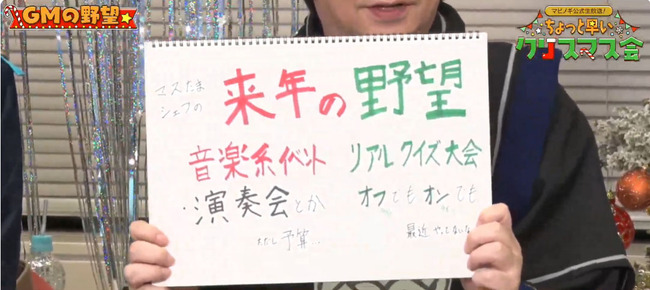 GMの野望
マビノギ公式生放送!
ちょっと早い
クリスマス会
マスたま
シェフの
来年の野望
音楽系イベント
・演奏会とか
ただし予算...
リアルクイズ大会
オフでもオンでも
最近やってないな